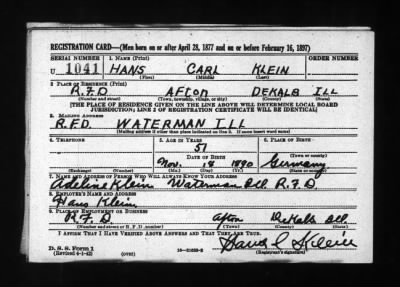 REGISTRATION CARD—(Men born on or after April 28, 1877 and on or before February 16, 1897)
SERIAL NUMBER 1. NAME (Print) ORDER NUMBER
U 1041 HANS CARL KLEIN
(First) (Middle) (Last)
2. PLACE OF RESIDENCE (Print)
R.F.D AFTON DEKALB ILL
(Number and street) (Town, township, village, or city) (County) (State)
[THE PLACE OF RESIDENCE GIVEN ON THE LINE ABOVE WILL DETERMINE LOCAL BOARD
JURISDICTION; LINE 2 OF REGISTRATION CERTIFICATE WILL BE IDENTICAL]
3. MAILING ADDRESS
R.F.D. WATERMAN ILL
[Mailing address if other than place indicated on line 2. If same insert word same]
4. TELEPHONE 5. AGE IN YEARS 6. PLACE OF BIRTH
51
DATE OF BIRTH (Town or county)
Nov. 18 1890 Germany
(Exchange) (Number) (Mo.) (Day) (Yr.) (State or country)
7. NAME AND ADDRESS OF PERSON WHO WILL ALWAYS KNOW YOUR ADDRESS
Adeline Klein Waterman Ill. R.F.D.
8. EMPLOYER'S NAME AND ADDRESS
Hans Klein
9. PLACE OF EMPLOYMENT OR BUSINESS
R.F.D Afton DeKalb Ill.
(Number and street or R. F. D. number) (Town) (County) (State)
I AFFIRM THAT I HAVE VERIFIED ABOVE ANSWERS AND THAT THEY ARE TRUE.
D. S. S. Form 1
(Revised 4-1-42) (over) Hans C Klein
(Registrant's signature)